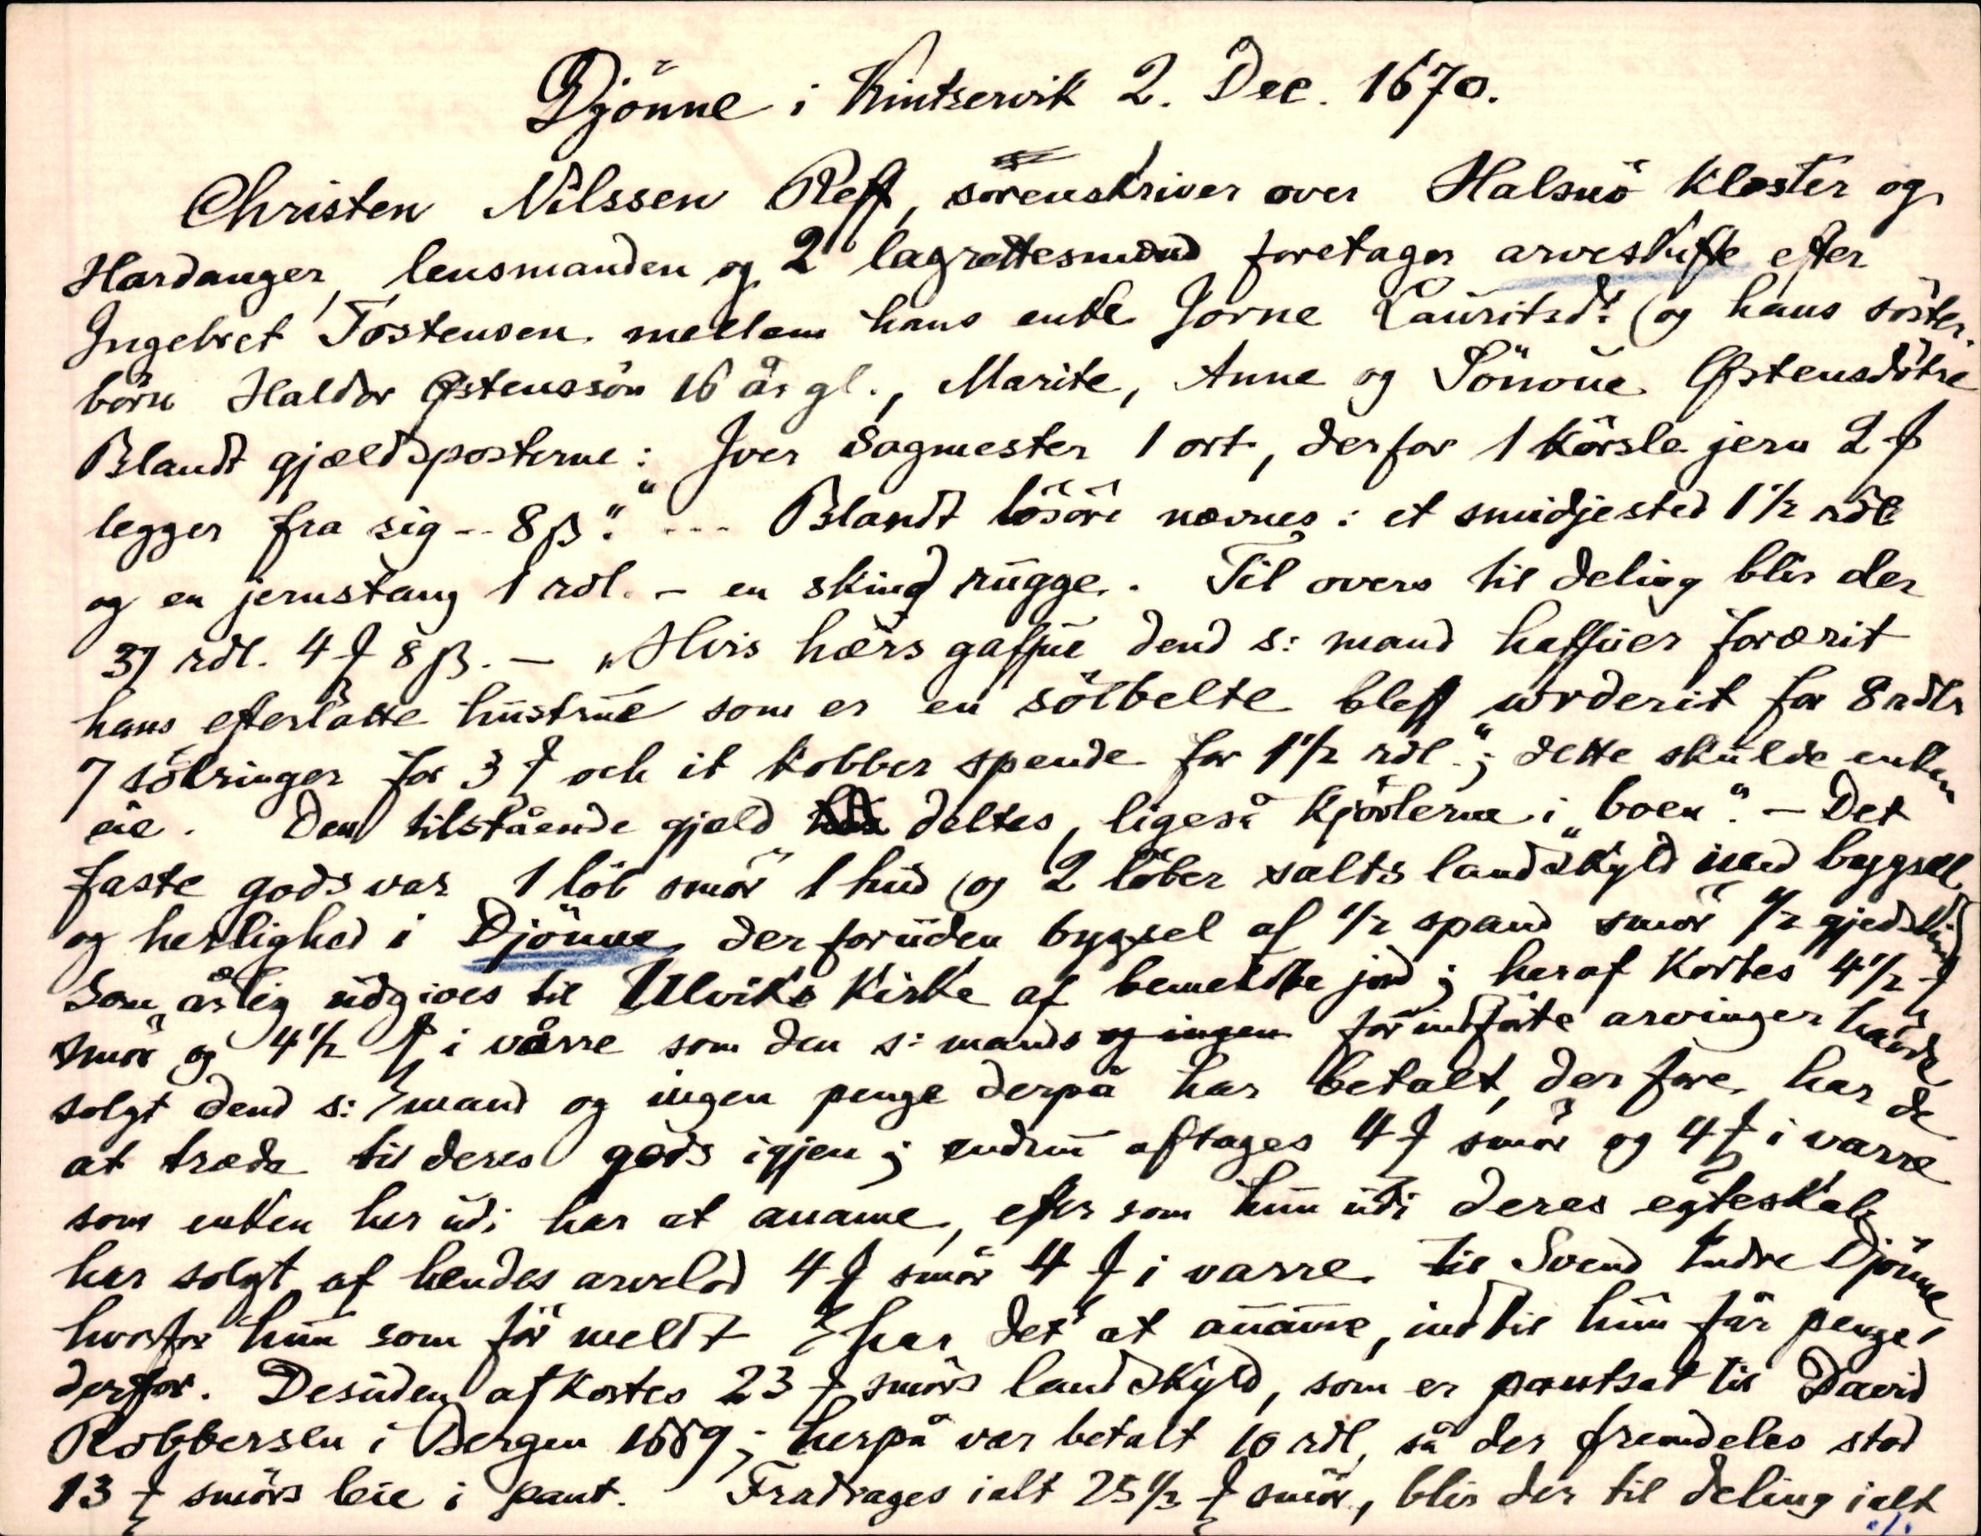 Djönne i Kintservik 2. Dec. 1670.
Christen Nilssen Reff, sörenskriver over Halsnö kloster og
Hardanger, lensmanden og 2 lagrettesmænd foretager arveskifte efter
Ingebret Tostensen mellem hans enke Jorne Lauritsdt. og hans söster-
börn Haldor Östenssön 16 år gl., Marite, Anne og Sönoue Östensdötre
Blandt gjældsposterne: "Iver Sagmester 1 ort, derfor 1 körsle jern 2 ₰
legger fra sig -- 8 β." --- Blandt lösöre nævnes: et smidjested 1 1/2 rdlr
og en jernstang 1 rdl. - en skind rugge. Til overs til deling blir der
37 rdl. 4 ₰ 8 β. - "Hvis hærs gaffue dend s: mand haffuer forærit
hans efterlatte hustrue som er en sölbelte bleff wrderit for 8 rdlr
7 sölringer for 3 ₰ och it kobber spende for 1 1/2 rdl."; dette skulde enken
eie. Den tilstående gjeld deltes, ligeså kjörlerne i "boen". - Det
faste gods var 1 löb smör 1 hud og 2 löber salts landskyld med bygsel
og herlighed i Djönne, der foruden bygsel af 1/2 spand smör 1/2 gjedskind
som årlig udgives til Ulviks kirke af bemeldte jord; heraf kortes 4 1/2 ₰
smör og 4 1/2 ₰ i varre som den s: mands og ingen forindförte arvinger havde
solgt dend s: mand og ingen penge derpå har betalt, der fore har de
at træde til deres gods igjen; endnu aftages 4 ₰ smör og 4 ₰ i varre
som enken her udi har at aname, efter som hun udi deres egteskab
har solgt af hendes arvelod 4 ₰ smör 4 ₰ i varre til Svend Indre Djönne
hvorfor hun som för meldt har det at aname, indtil hun får penge
derfor. Desuden afkortes 23 ₰ smörs landskyld, som er pantsat til David
Robbersen i Bergen 1669; herpå var betalt 10 rdl, så der fremdeles stod
13 ₰ smörs leie i pant. Fradrages ialt 25 1/2 ₰ smör, blir der til deling ialt